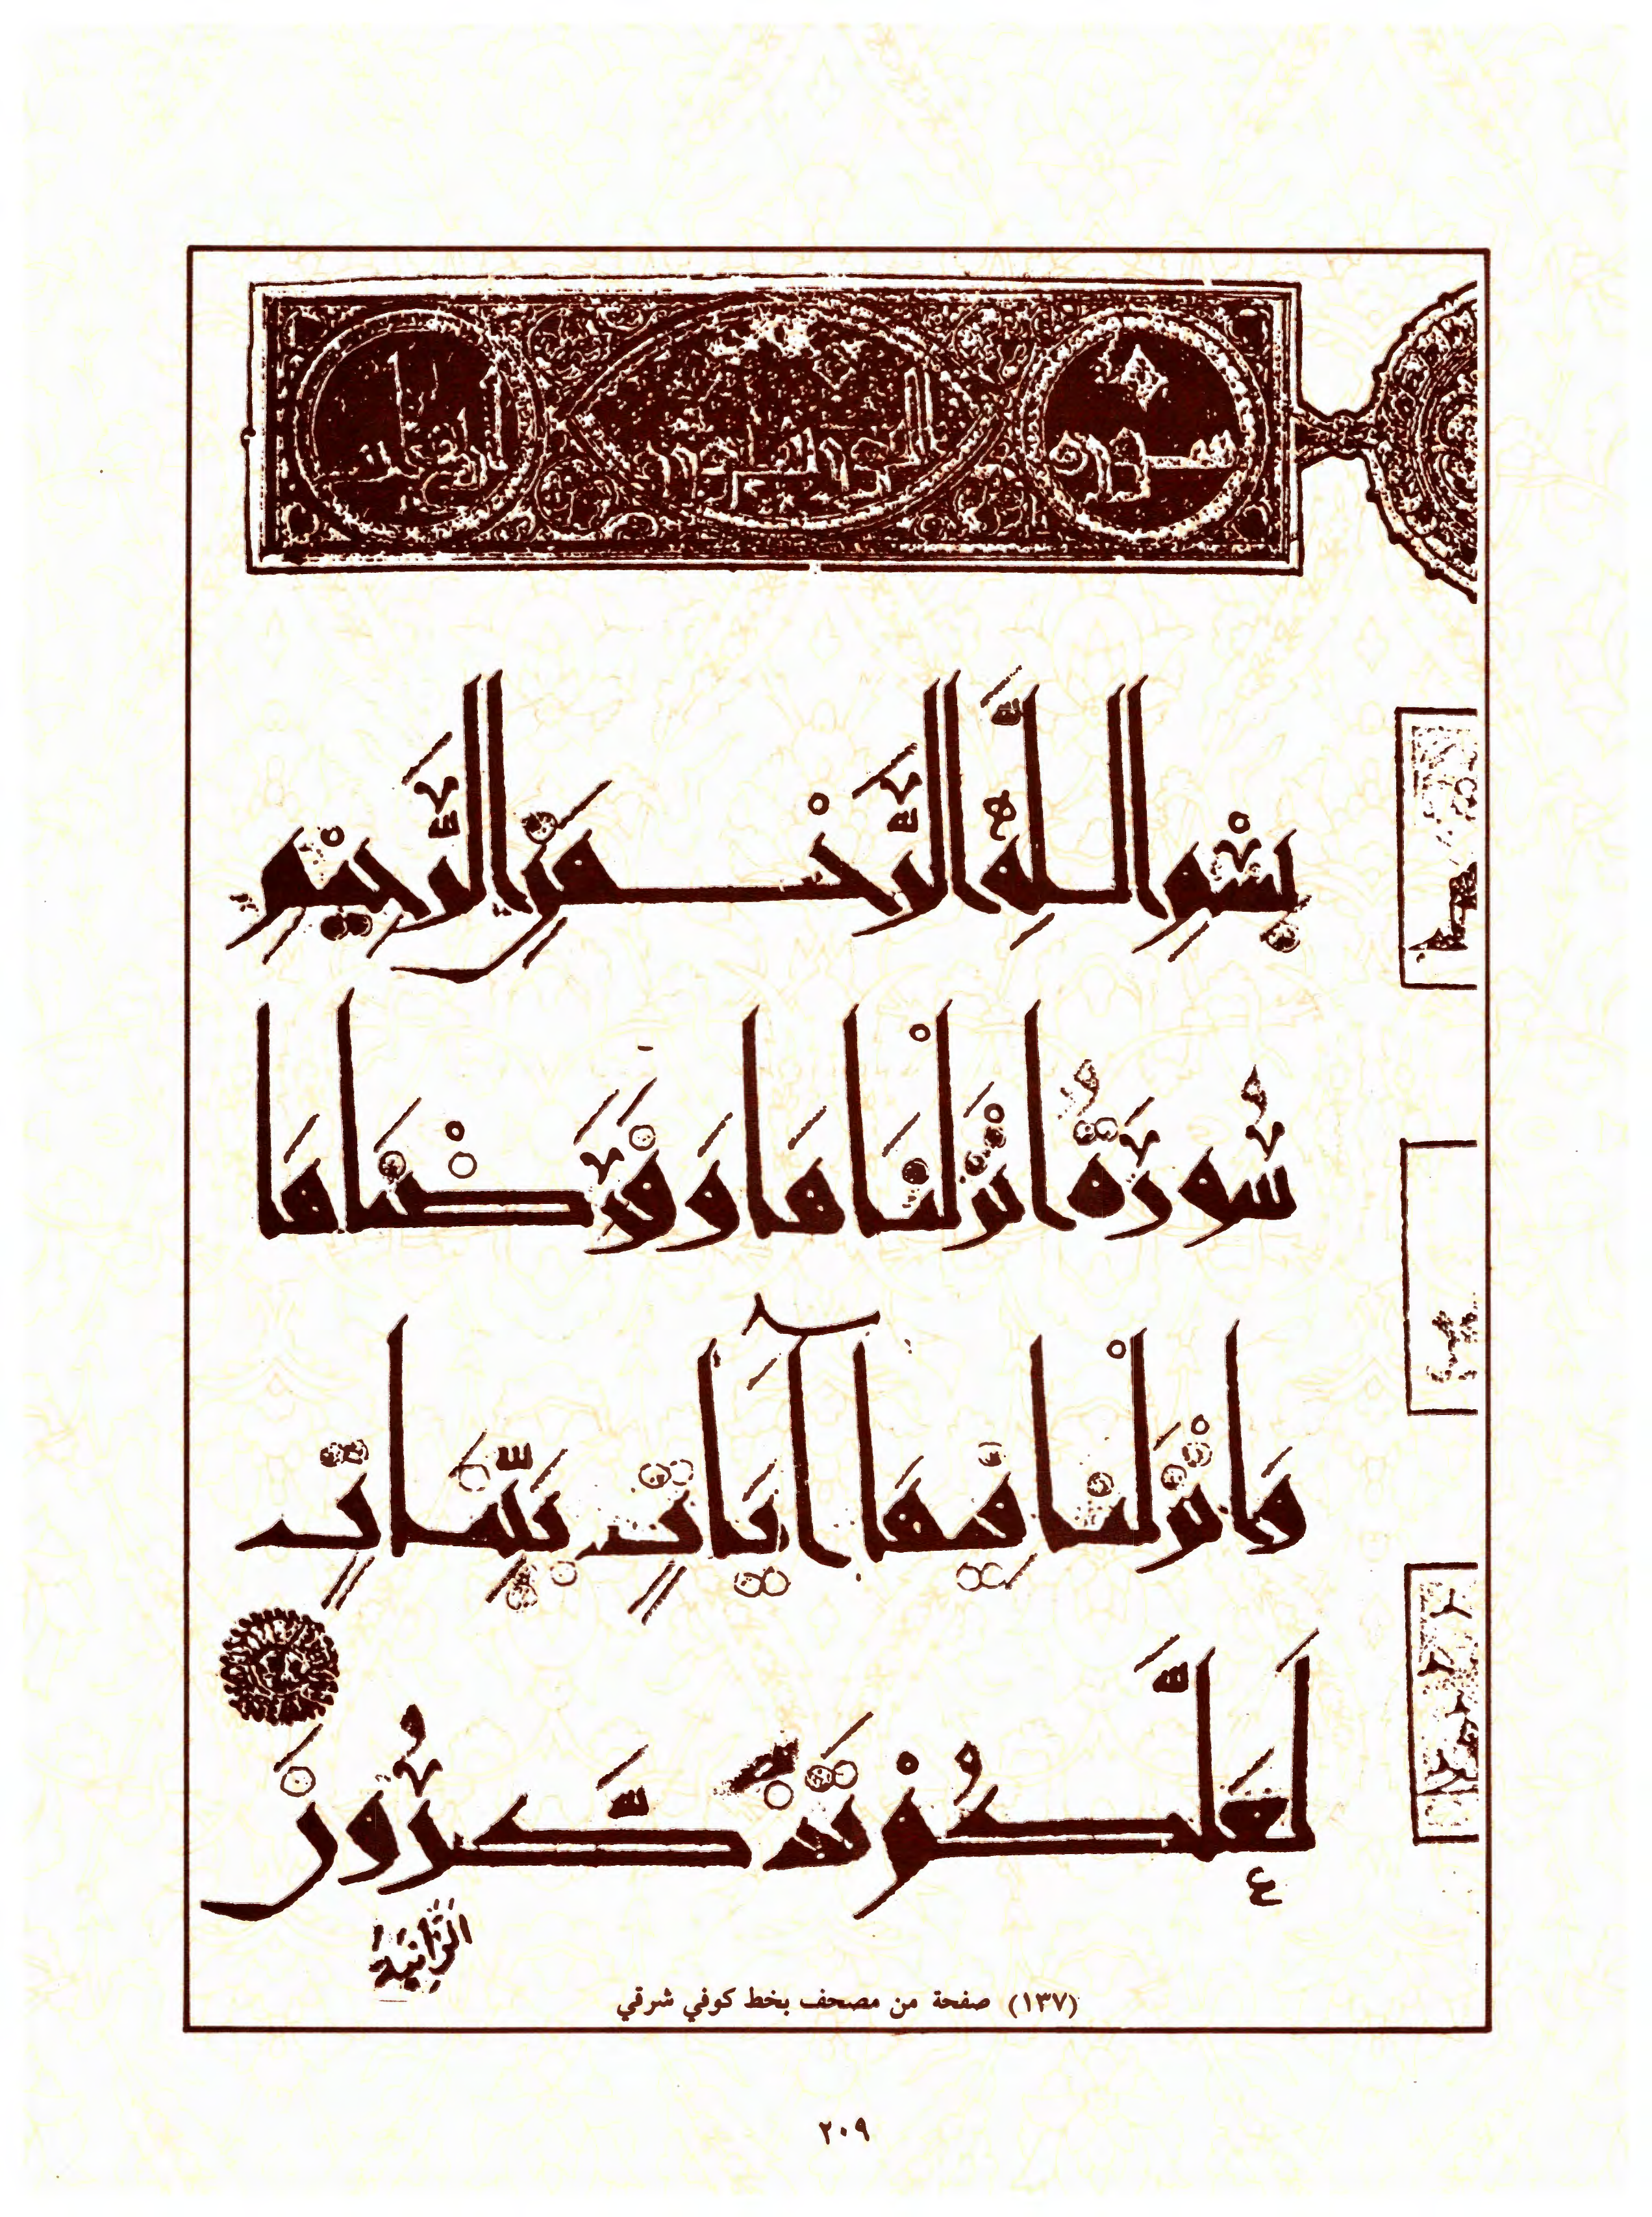 بِسْمِ اللَّهِ الرَّحْمَنِ الرَّحِيمِ
سُورَةٌ أَنْزَلْنَاهَا وَفَرَضْنَاهَا
وَأَنْزَلْنَا فِيهَا آيَاتٍ بَيِّنَاتٍ
لَعَلَّكُمْ تَذَكَّرُونَ
الزَّانِيَةُ
(١٣٧) صفحة من مصحف بخط كوفي شرقي
٢٠٩